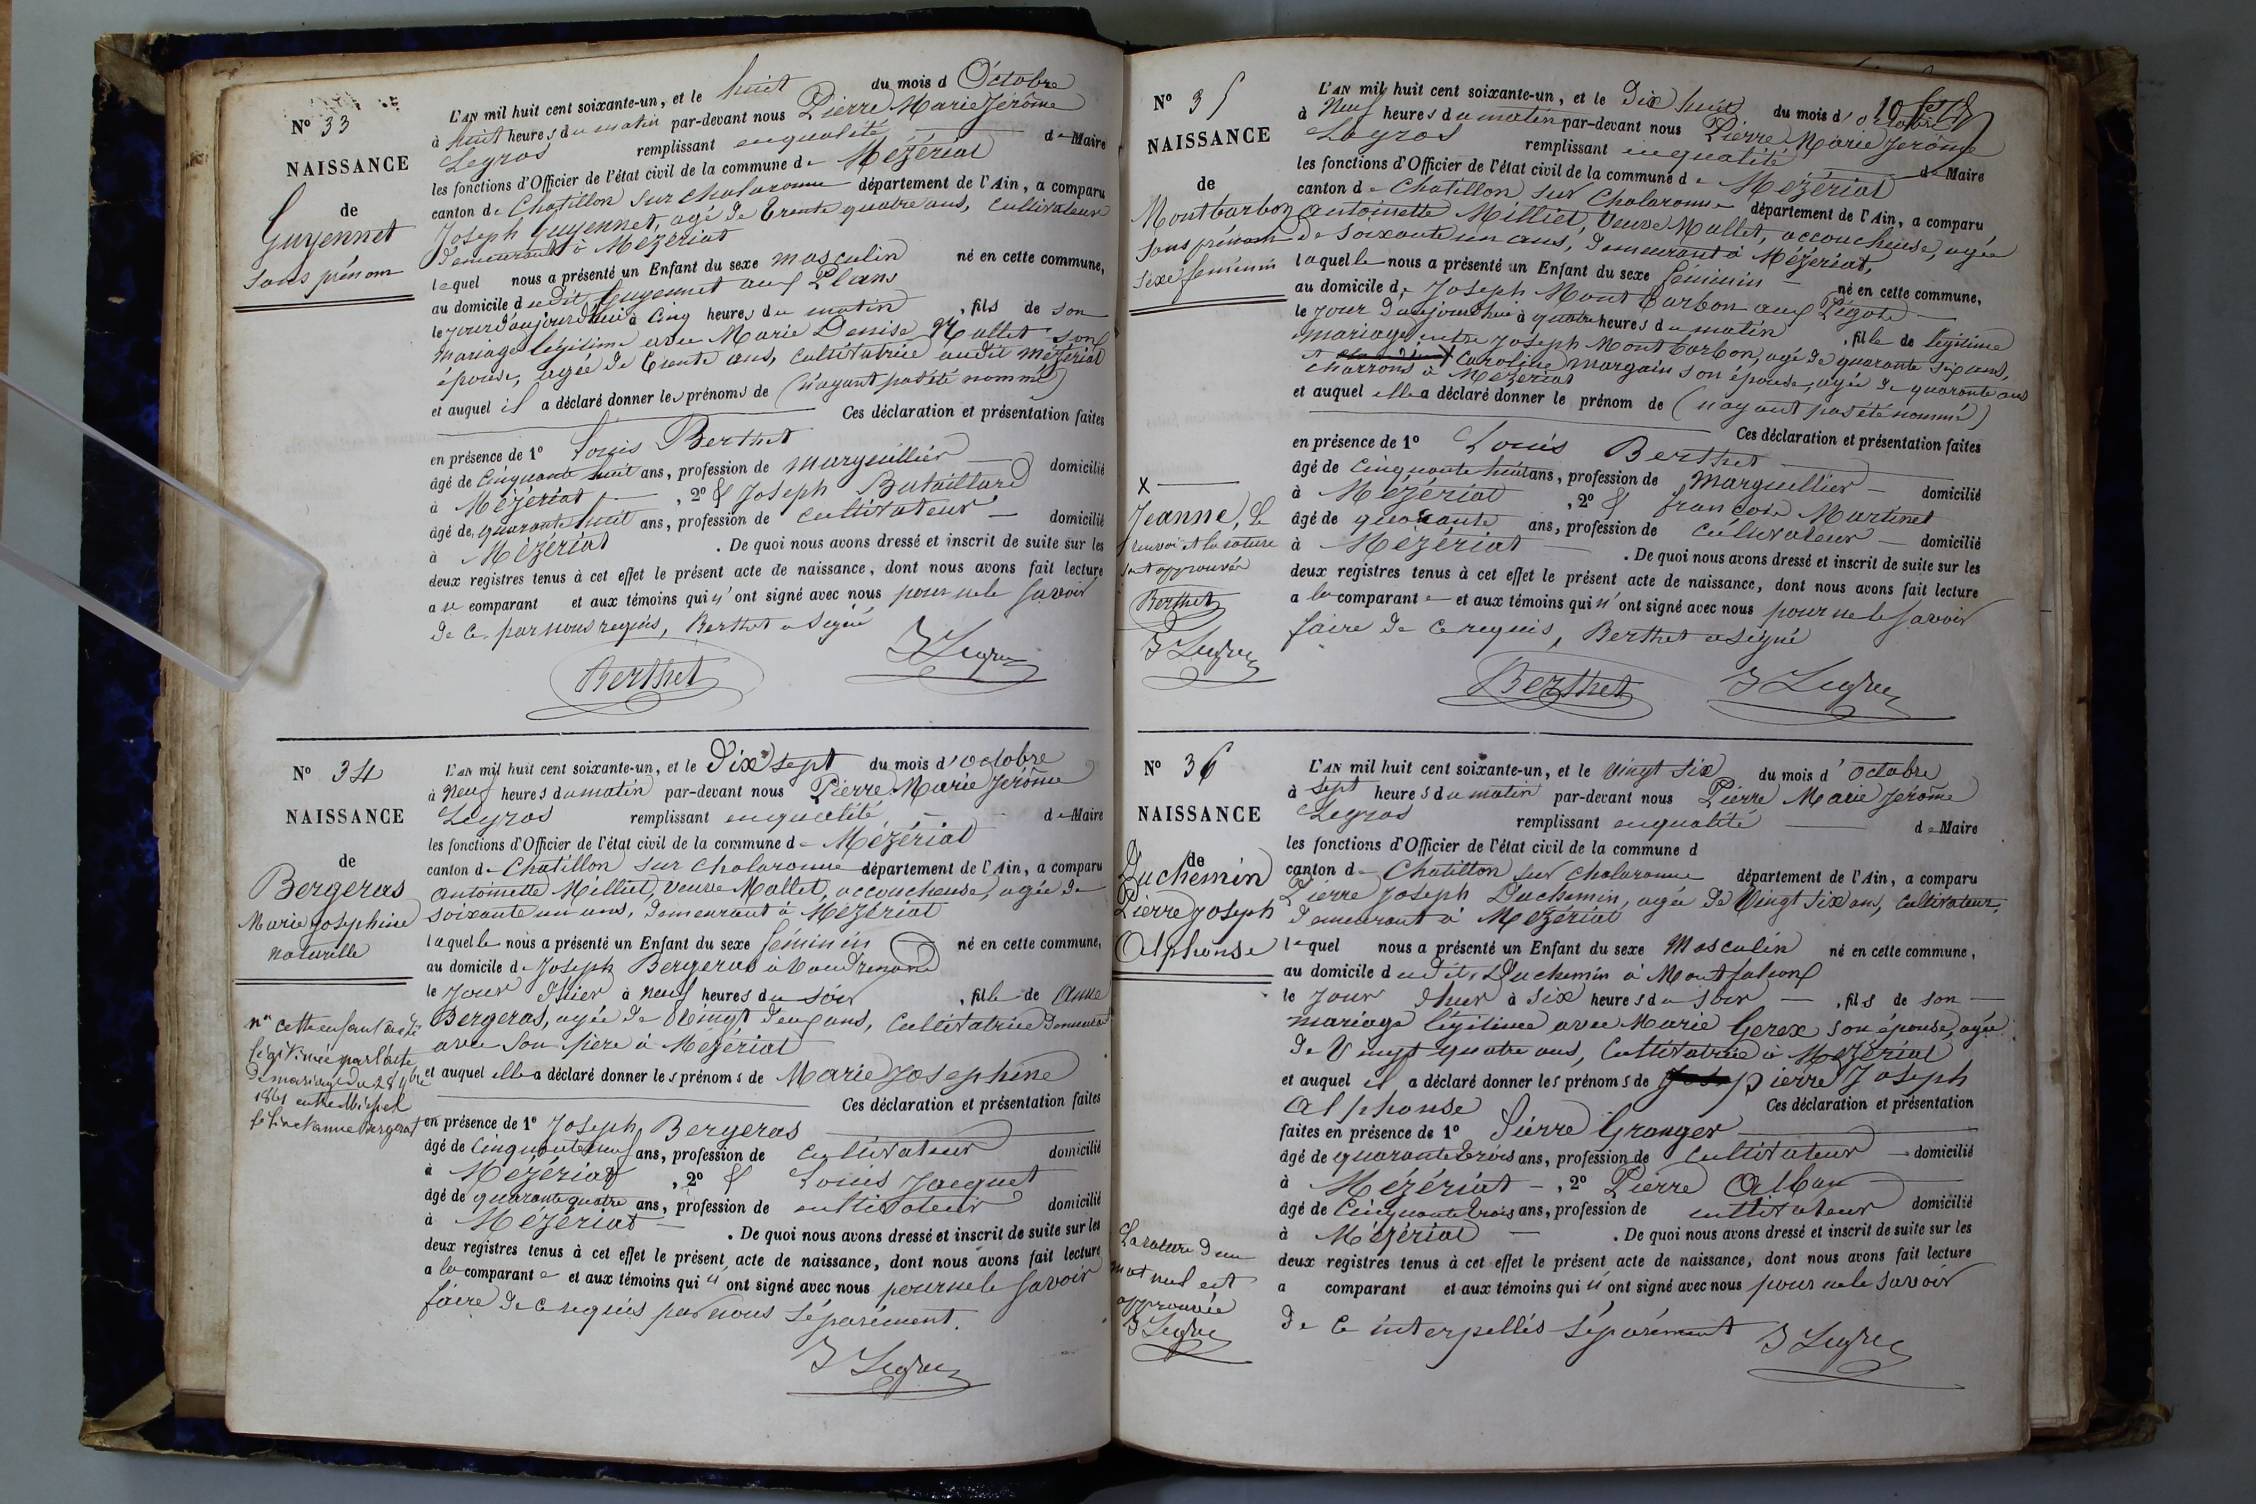 N° 33
NAISSANCE
de
Guyennet
sans prénom
L'AN mil huit cent soixante-un, et le huit du mois d Octobre
à huit heures du matin par-devant nous Pierre Marie Jérôme
Legros remplissant en qualité de Maire
les fonctions d'Officier de l'état civil de la commune de Mézériat
canton de Chatillon sur Chalaronne département de l'Ain, a comparu
Joseph Guyennet, agé de trente quatre ans, cultivateur
demeurant à Mézériat
lequel nous a présenté un Enfant du sexe masculin né en cette commune,
au domicile dudit Guyennet aux Plans
le jour d'aujourd'hui à cinq heures du matin, fils de son
mariage légitime avec Marie Denise Mallet son
épouse, agée de trente ans, cultivatrice audit Mézériat
et auquel il a déclaré donner les prénoms de (n'ayant pas été nommé)
Ces déclaration et présentation faites
en présence de 1° Louis Berthet
âgé de cinquante huit ans, profession de marguillier domicilié
à Mézériat, 2° & Joseph Bataillard
âgé de quarante huit ans, profession de cultivateur domicilié
à Mézériat. De quoi nous avons dressé et inscrit de suite sur les
deux registres tenus à cet effet le présent acte de naissance, dont nous avons fait lecture
a u comparant et aux témoins qui n'ont signé avec nous pour ne le savoir
de ce par nous requis, Berthet a signé
Berthet J Legros
N° 34
NAISSANCE
de
Bergeras
Marie Josephine
naturelle
cette enfant a été
légitimée par l'acte
de mariage du 28 9bre
1861 entre
et anne Bergerat
L'AN mil huit cent soixante-un, et le Dix sept du mois d'octobre
à neuf heures du matin par-devant nous Pierre Marie Jérôme
Legros remplissant en qualité de Maire
les fonctions d'Officier de l'état civil de la commune de Mézériat
canton de Chatillon sur Chalaronne département de l'Ain, a comparu
antoinette Milliet, veuve Mallet, accoucheuse, agée de
soixante un ans, demeurant à Mézériat
laquelle nous a présenté un Enfant du sexe féminin né en cette commune,
au domicile de Joseph Bergeras à
le jour d'hier à neuf heures du soir, fille de Anne
Bergeras, agée de vingt deux ans, cultivatrice demeurant
avec son père à Mézériat
et auquel elle a déclaré donner les prénoms de Marie Josephine
Ces déclaration et présentation faites
en présence de 1° Joseph Bergeras
âgé de cinquante neuf ans, profession de cultivateur domicilié
à Mézériat, 2° & Louis Jacquet
âgé de quarante quatre ans, profession de cultivateur domicilié
à Mézériat. De quoi nous avons dressé et inscrit de suite sur les
deux registres tenus à cet effet le présent acte de naissance, dont nous avons fait lecture
a la comparante et aux témoins qui n'ont signé avec nous pour ne le savoir
faire de ce requis par nous séparément.
J Legros
N° 35
NAISSANCE
de
Montbarbon
sans prénom
sexe féminin
x
Jeanne, le
renvoi et la rature
sont approuvés
Berthet
J Legros
L'AN mil huit cent soixante-un, et le Dix huit du mois d'octobre
à neuf heures du matin par-devant nous Pierre Marie Jérôme
Legros remplissant en qualité de Maire
les fonctions d'Officier de l'état civil de la commune de Mézériat
canton de Chatillon sur Chalaronne département de l'Ain, a comparu
antoinette Milliet, veuve Mallet, accoucheuse, agée
de soixante un ans, demeurant à Mézériat,
laquelle nous a présenté un Enfant du sexe féminin né en cette commune,
au domicile de Joseph Mont barbon aux
le jour d'aujourd'hui à quatre heures du matin, fille de légitime
mariage entre Joseph Mont barbon, agé de quarante six ans,
et x Caroline Margain son épouse, agée de quarante ans
charrons à Mézériat
et auquel elle a déclaré donner le prénom de (n'ayant pas été nommé)
Ces déclaration et présentation faites
en présence de 1° Louis Berthet
âgé de cinquante huit ans, profession de Marguillier domicilié
à Mézériat, 2° & françois Martinet
âgé de quarante ans, profession de cultivateur domicilié
à Mézériat. De quoi nous avons dressé et inscrit de suite sur les
deux registres tenus à cet effet le présent acte de naissance, dont nous avons fait lecture
a la comparante et aux témoins qui n'ont signé avec nous pour ne le savoir
faire de ce requis, Berthet a signé
Berthet J Legros
N° 36
NAISSANCE
de
Duchemin
Pierre Joseph
Alphonse
La rature d'un
mot nul est
approuvée
J Legros
L'AN mil huit cent soixante-un, et le vingt six du mois d'octobre
à sept heures du matin par-devant nous Pierre Marie Jérôme
Legros remplissant en qualité de Maire
les fonctions d'Officier de l'état civil de la commune d
canton de Chatillon sur Chalaronne département de l'Ain, a comparu
Pierre Joseph Duchemin, agée de Vingt six ans, cultivateur,
demeurant à Mézériat
lequel nous a présenté un Enfant du sexe Masculin né en cette commune,
au domicile dudit Duchemin à Montfalcon
le jour d'hier à six heures du soir, fils de son
mariage légitime avec Marie Gerex son épouse, agée
de Vingt quatre ans, cultivatrice à Mézériat
et auquel il a déclaré donner les prénoms de pierre Joseph
Alphonse Ces déclaration et présentation
faites en présence de 1° Pierre Granger
âgé de quarante trois ans, profession de cultivateur domicilié
à Mézériat, 2° Pierre Alban
âgé de Cinquante trois ans, profession de cultivateur domicilié
à Mézériat. De quoi nous avons dressé et inscrit de suite sur les
deux registres tenus à cet effet le présent acte de naissance, dont nous avons fait lecture
a comparant et aux témoins qui n'ont signé avec nous pour ne le savoir
de ce interpellés séparément J Legros